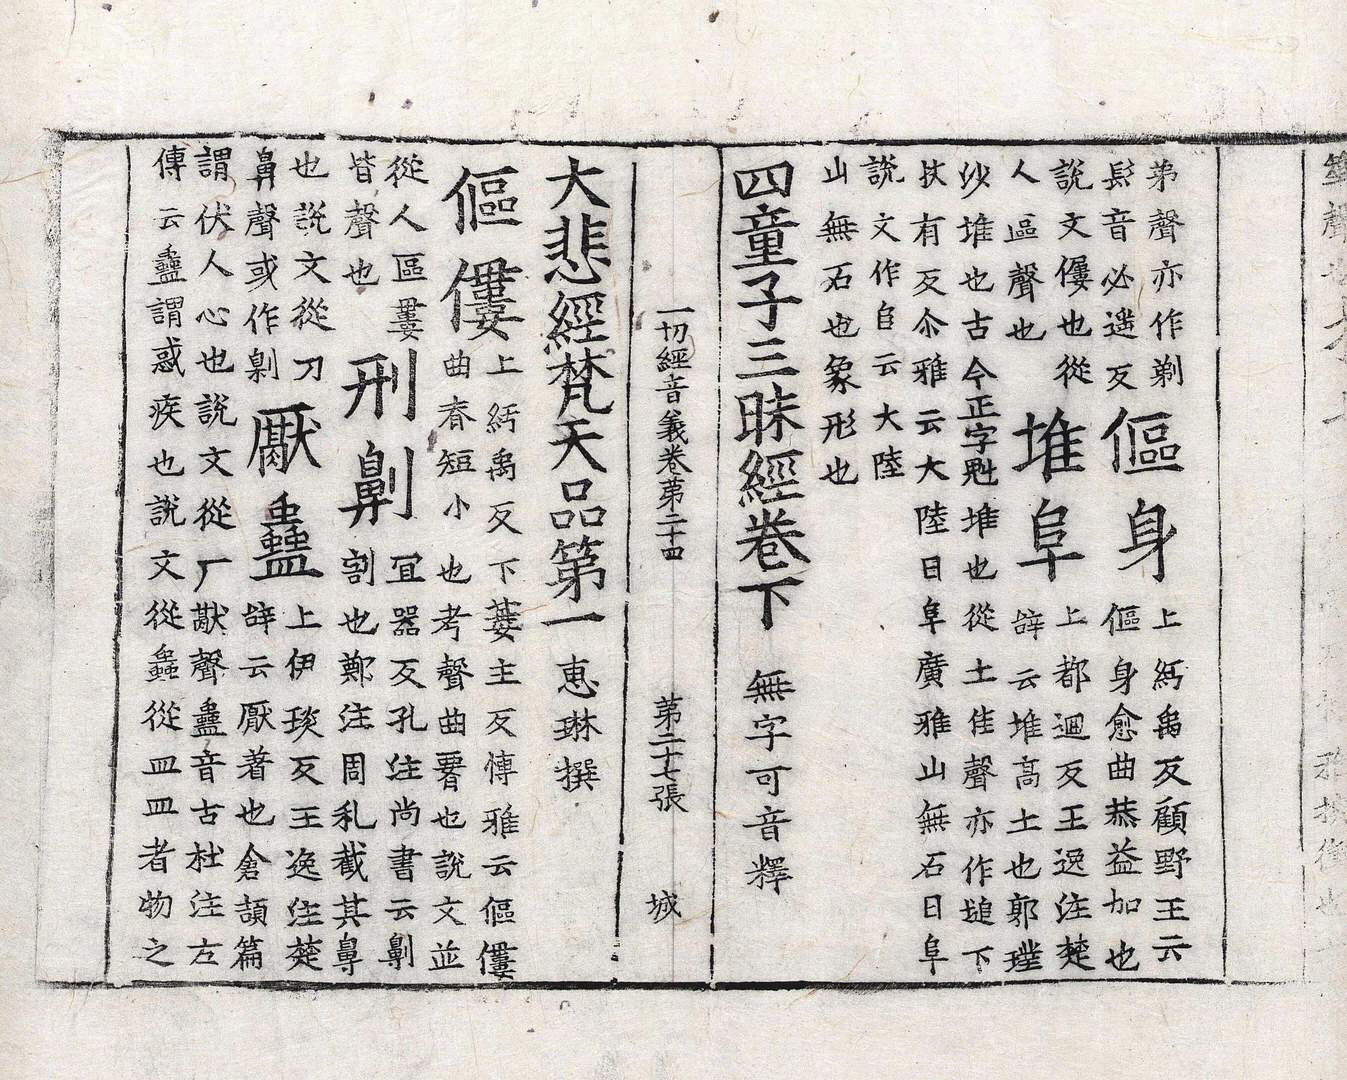 弟聲亦作剃
髟音必遥反
傴身
上紆禹反顧野王云
傴身愈曲恭益加也
說文僂也從
人區聲也
堆阜
上都迴反王逸注楚
辝云堆高土也郭璞
沙堆也古今正字魁堆也從土隹聲亦作塠下
扶有反尒雅云大陸曰阜廣雅山無石曰阜
說文作𠂤云大陸
山無石也象形也
四童子三昧經卷下 無字可音釋
一切經音義卷第二十四 第二十七張 城
大悲經梵天品第一 惠琳撰
傴僂
上紆禹反下蔞主反慱雅云傴僂
曲脊短小也考聲曲䙅也說文並
從人區婁
皆聲也
刑劓
冝器反孔注尚書云劓
割也鄭注周礼截其鼻
也說文從刀
鼻聲或作劓
厭蠱
上伊琰反王逸注楚
辝云厭著也倉頡篇
謂伏人心也說文從厂猒聲蠱音古杜注左
傳云蠱謂惑疾也說文從蟲從皿皿者物之